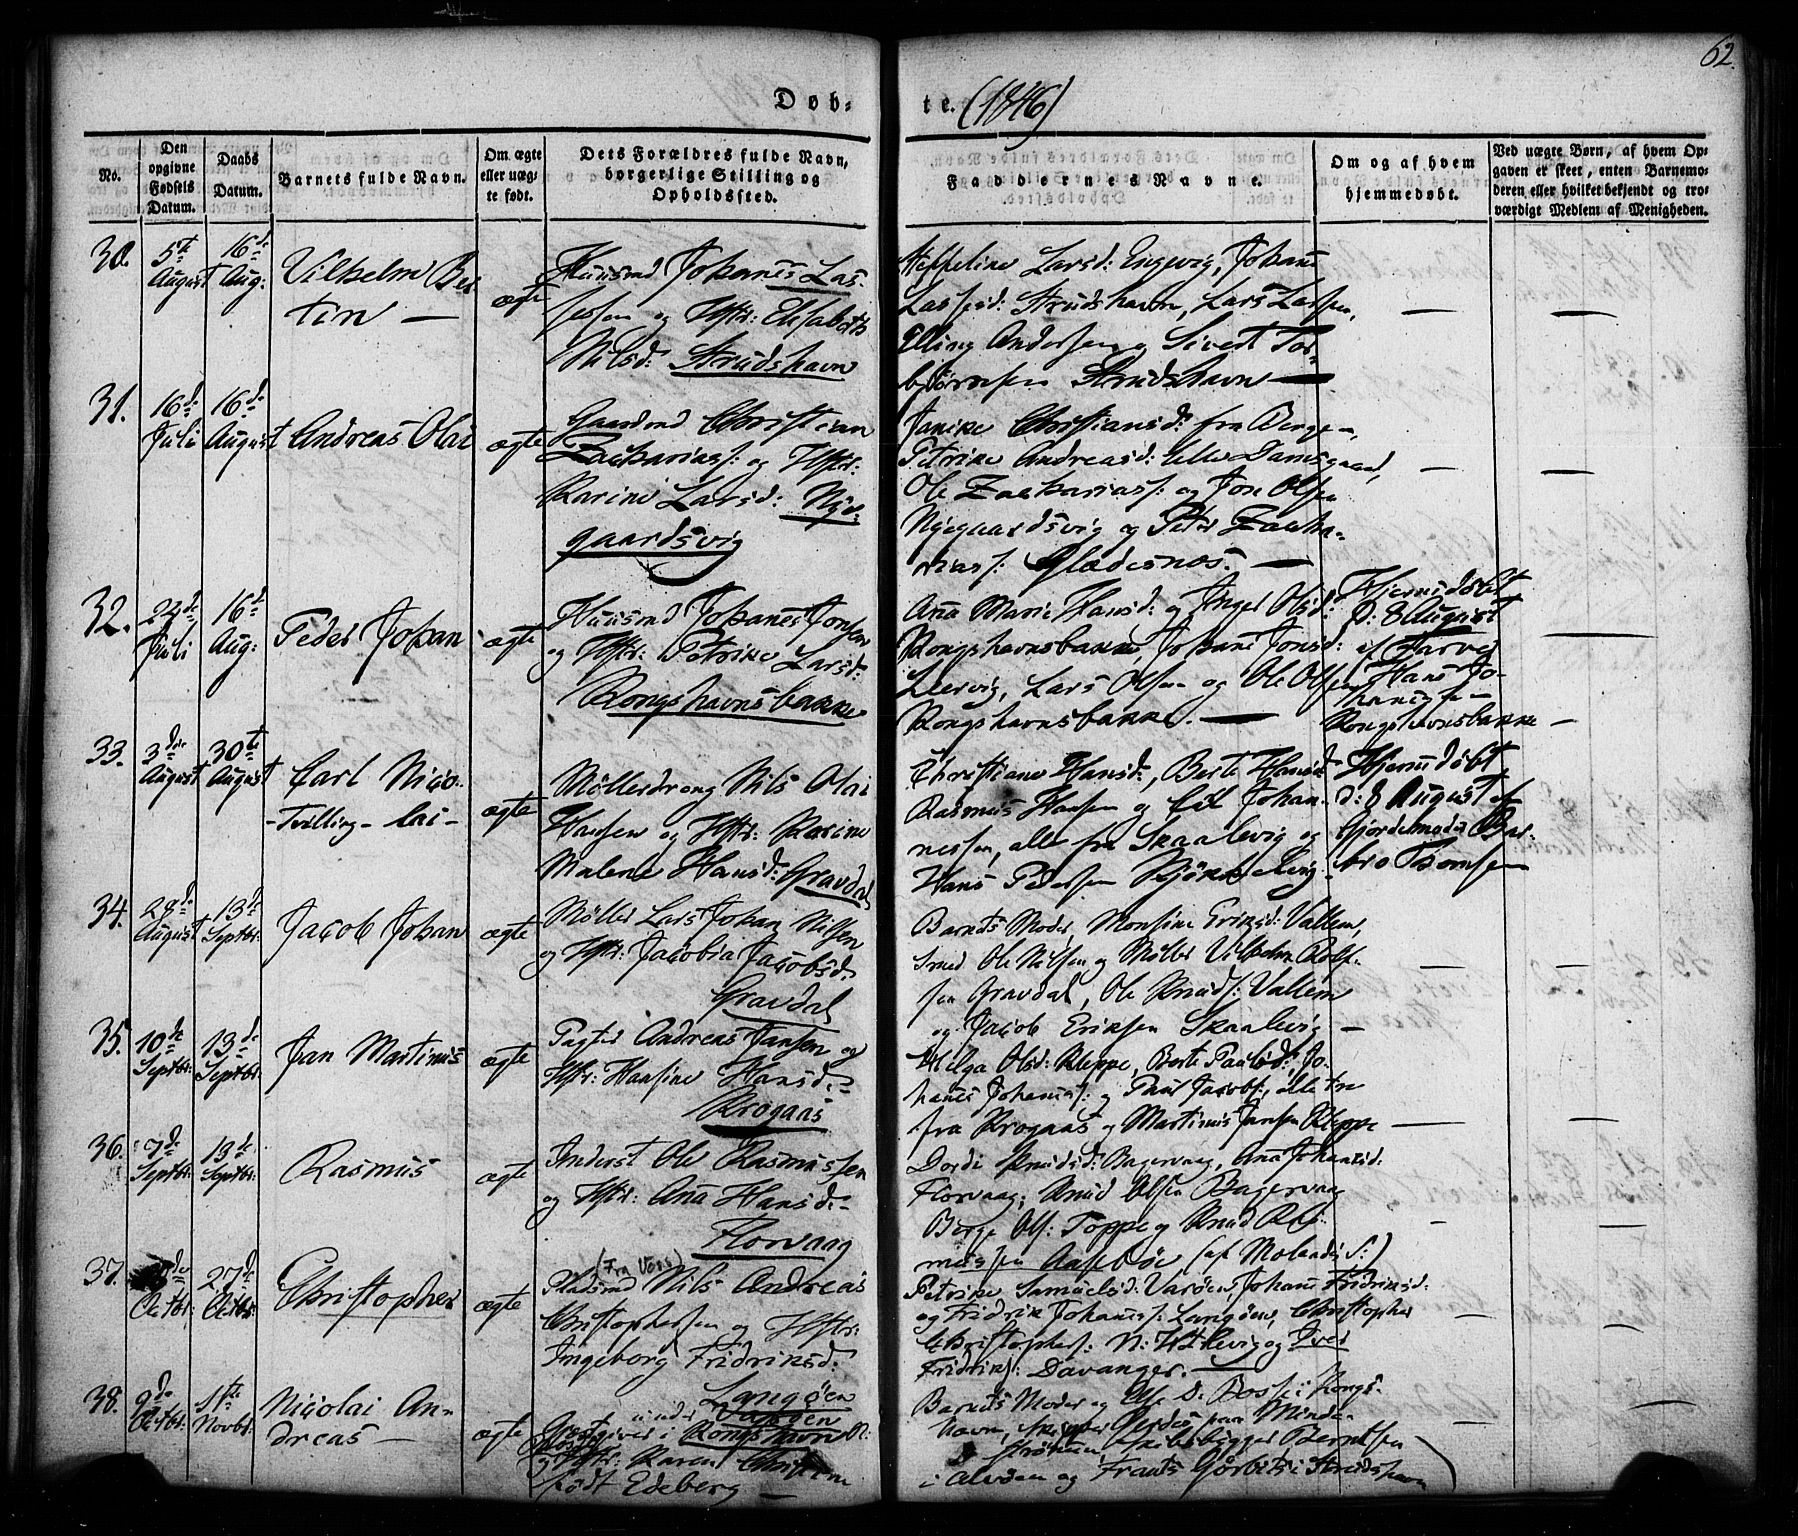 62.
Døb-
te. (1846)
No.
Den opgivne Fødsels Datum.
Daabs Datum.
Barnets fulde Navn.
Om ægte eller uægte født.
Dets Forældres fulde Navn, borgerlige Stilling og Opholdssted.
Faddernes Navne.
Om og af hvem hjemmedøbt.
Ved uægte Børn, af hvem Opgaven er skeet, enten Barnemoderen eller hvilket bekjendt og troværdigt Medlem af Menigheden.
30.
5te August
16de Aug:
Vilhelm Ber
tin —
ægte
Huusmd Johanes Las-
sessen og Hstr: Elisabeth
Nilsd: Strudshavn
Larsd: Engevig, Johane
Lassesd: Strudshavn, Lars Larsen,
Elling Andersen og Sivert Tor-
bjørnsen Strudshavn —
31.
16de Juli
16de August
Andreas Olai
ægte
Gaardmd Christian
Zachariass: og Hstr:
Karine Larsd: Nye-
gaardsvig
Janike Christiansd: fra Berge-,
Petrike Andreasd: Lille Damsgaard,
Ole Zachariass: og Jon Olsen
Nyegaardsvig og Peter Zacha-
rias: Glædesnæs. —
32.
24de Juli
16de Aug:
Peder Johan
ægte
Huusmd Johanes Jonsen
og Hstr: Petrike Larsd:
Kongshavnsbakke
Ana Marie Hansd: og Inger Olsd:
Kongshavnsbakke, Johane Jonsd:
Leervig, Lars Olsen og Ole Olsen
Kongshavnsbakke. —
Hjemmedøbt
d: 8 August
af Farver
Hans Jo-
hanesen
Kongshavnsbakke
33.
3die August
30te August
Carl Nico-
-Tvilling- lai-
ægte
Møllerdreng Nils Olai
Hansen og Hstr: Karine
Malene Hansd: Gravdal
Christiane Hansd:, Berte Hansd:
Rasmus Hansen og Johan-
nessen, alle fra Skaalevig og
Hans Pedersen
Hjemdøbt
d: 8 August af
Gjordemoder Bar-
bro Thomsen
34.
28de August
13de Septbr:
Jacob Johan
ægte
Møller Lars Johan Nilsen
og Hstr: Jacobia Jacobsd:
Gravdal
Barnets Moder, Monsine Eriksd: Vallem,
Smed Ole Nilsen og Møller Vilhelm Rolf-
sen Gravdal, Ole Knuds: Vallem
og Jacob Eriksen Skaalevig —
35.
10de Septbr:
13de Septbr:
Jan Martinus
ægte
Pagter Andreas Jansen og
Hstr: Hansine Hansd:
Krogaas
Helga Olsd: Kleppe, Berte Paulsd:, Jo-
hanes Johaness: og Paul Jacobs:, alle tre
fra Krogaas og Martinus Jansen Kleppe
36.
7de Septbr:
13de Septbr:
Rasmus
ægte
Inderst Ole Rasmussen
og Hstr: Ana Hansd:
Florvaag
Dordi Knudsd: Bagervaag, Ana Johanesd:
Florvaag, Knud Olsen Bagervaag
Børge Ols: Toppe og Knud Ras-
mussen Aasebøe
37.
Octbr:
27de Octbr:
Christopher
ægte
(Fra Vors)
Pladsmd Nils Andreas
Christophersen og Hstr:
Ingeborg Fridriksd:
Langøen
under Varøen
Petrike Samuelsd: Varøen, Johane Fridriksd:
og Fridrik Johaness: Langøen, Christopher
Christophers: N: Hølevig og Iver
Fridriks: Davanger. —
38.
9de Octbr:
1ste Novbr:
Nicolai An-
dreas —
ægte
Gjestgiver i Kongshavn
og Hstr: Karen
født Edeberg —
Barnets Moder og i Kongs-
havn, Skipper paa Minde-
strømen, Skibsbygger Berntsen
i Alvøen og Frants i Strudshavn